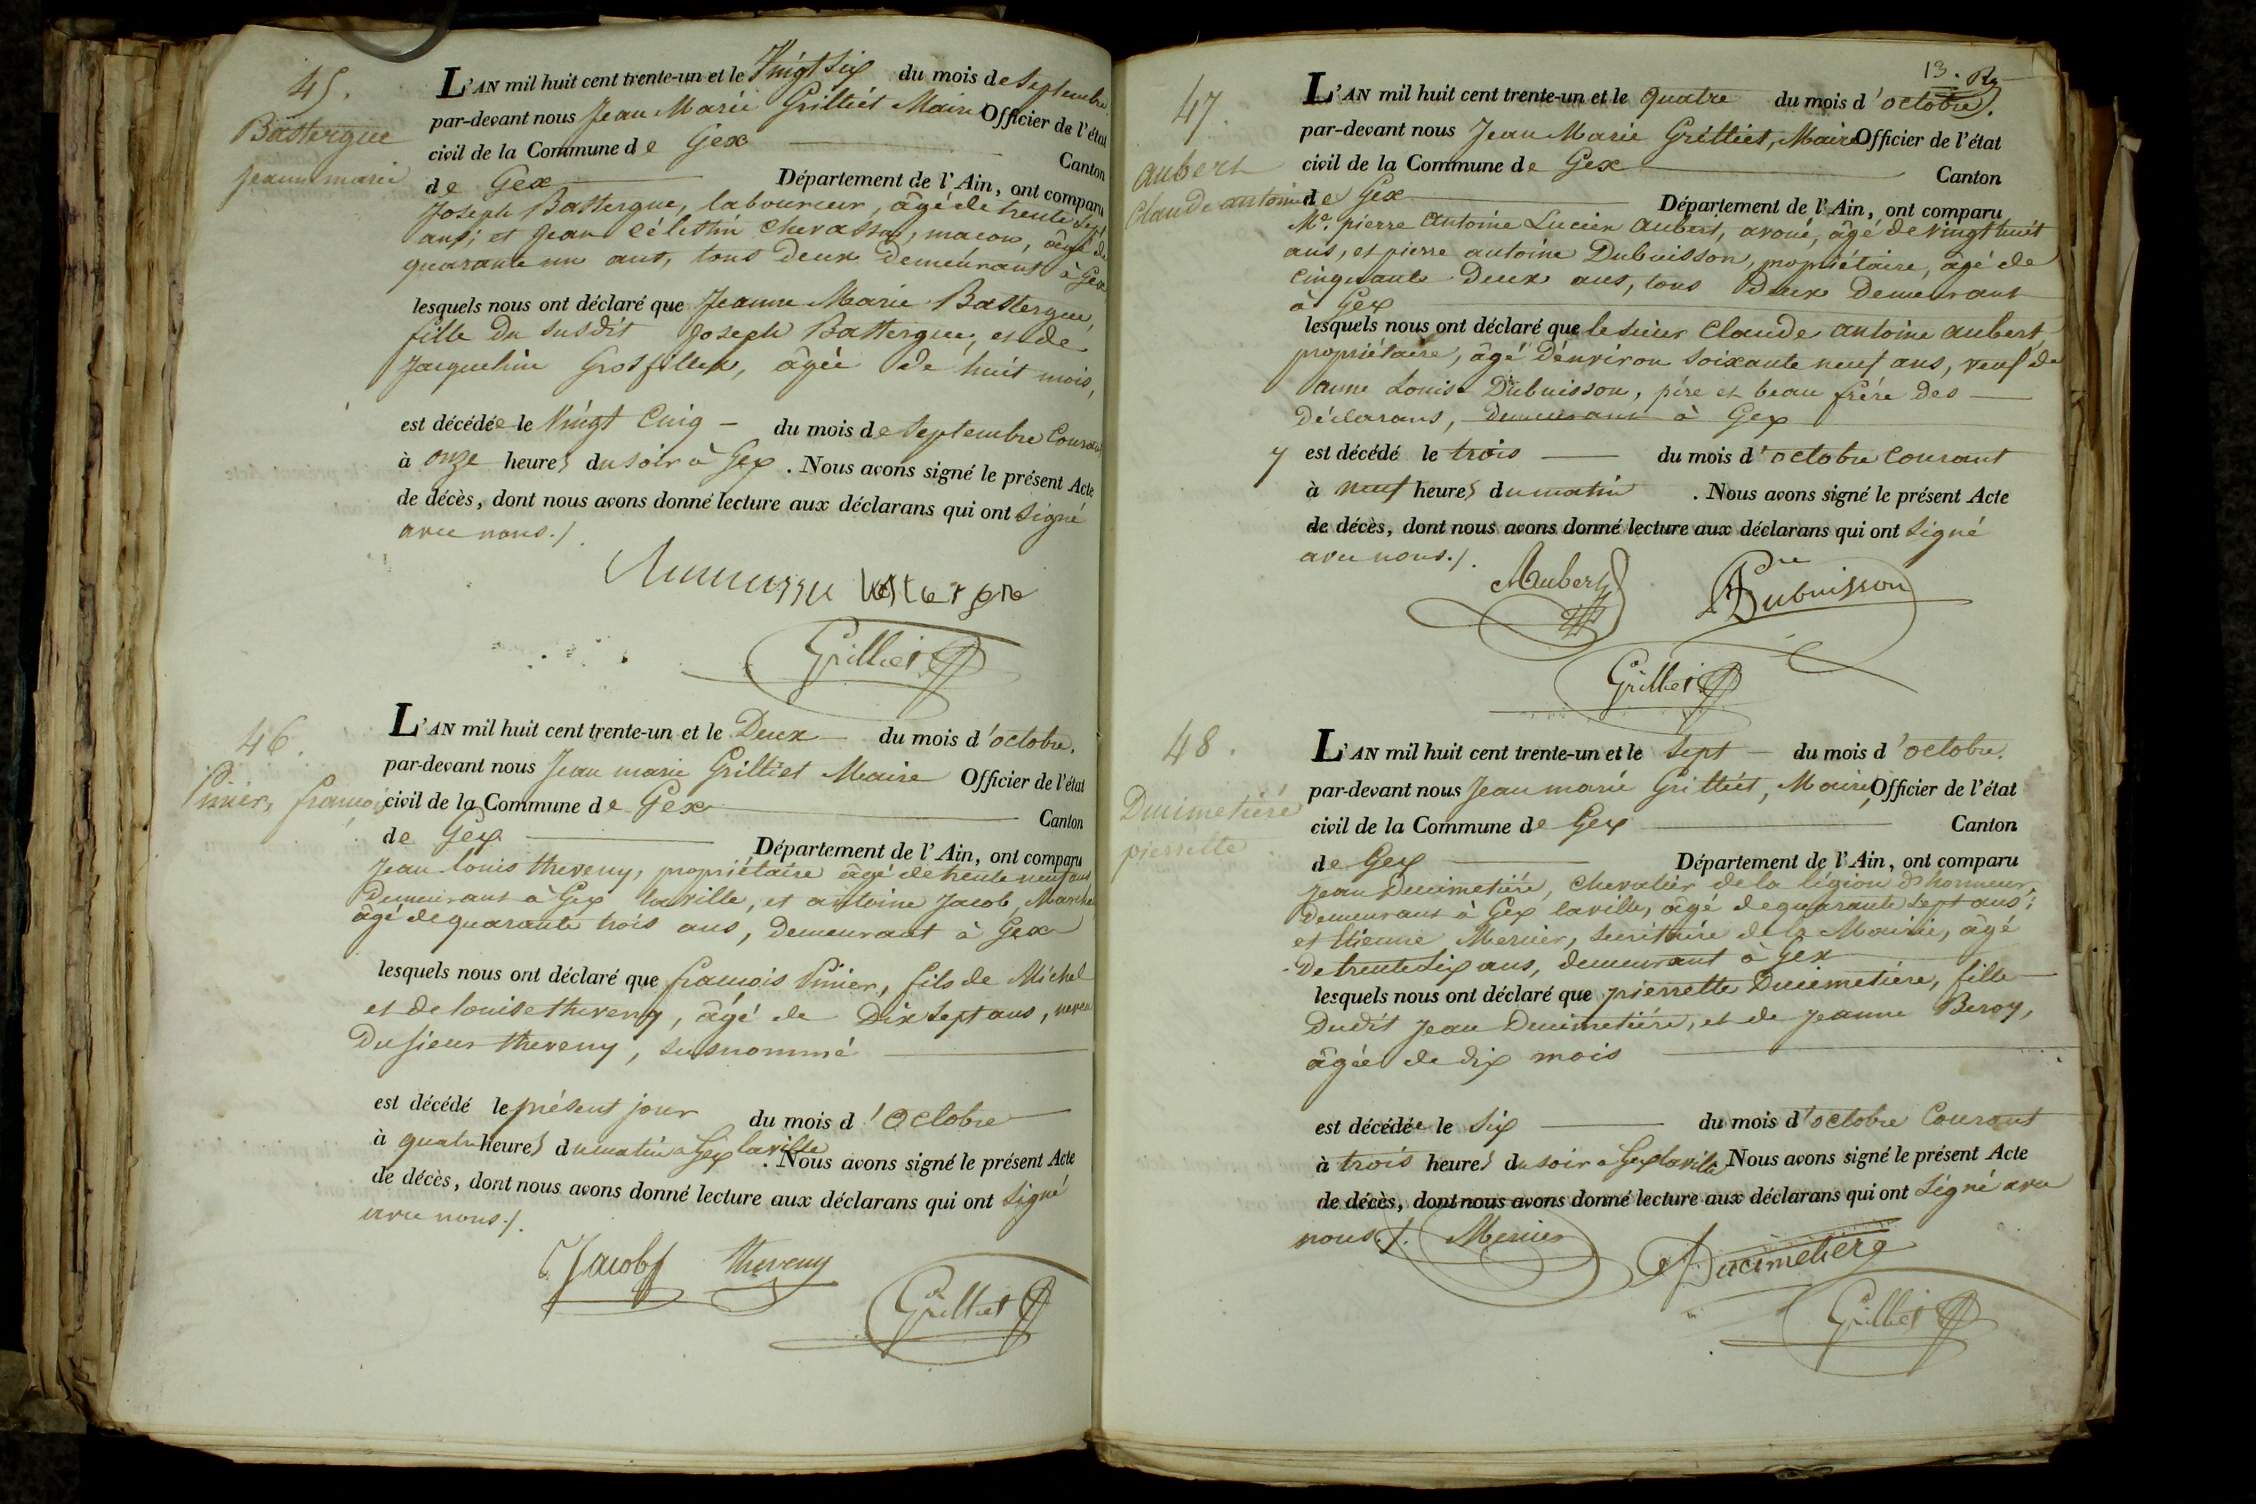 45.
Battergue
Jeanne marie
L'AN mil huit cent trente-un et le Vingt Six du mois de Septembre
par-devant nous Jean Marie Grilliet Maire Officier de l'état
civil de la Commune de Gex
Canton
de Gex Département de l'Ain, ont comparu
Joseph Battergue, laboureur, âgé de trente Sept
ans; et Jean Célestin Chevassu, maçon, âgé de
quarante un ans, tous Deux Demeurant à Gex
lesquels nous ont déclaré que Jeanne Marie Battergue,
fille du susdit Joseph Battergue, et de
Jacqueline Grosfillex, âgée de huit mois,
est décédée le Vingt Cinq du mois de Septembre Courant
à onze heures du soir à Gex. Nous avons signé le présent Acte
de décès, dont nous avons donné lecture aux déclarans qui ont Signé
avec nous./.
Grilliet
46.
françois
L'AN mil huit cent trente-un et le Deux du mois d'octobre.
par-devant nous Jean marie Grilliet Maire Officier de l'état
civil de la Commune de Gex
Canton
de Gex Département de l'Ain, ont comparu
Jean Louis theveny, propriétaire âgé de trente neuf ans
Demeurant à Gex la ville, et antoine Jacob,
âgé de quarante trois ans, Demeurant à Gex
lesquels nous ont déclaré que françois fils de Michel
et de Louise theveny, âgé de Dix Sept ans, neveu
Du sieur theveny, susnommé
est décédé le présent jour du mois d'Octobre
à quatre heures du matin à Gex la ville. Nous avons signé le présent Acte
de décès, dont nous avons donné lecture aux déclarans qui ont Signé
avec nous./.
Jacob theveny
Grilliet
13.
47.
aubert
Claude antoine
L'AN mil huit cent trente-un et le quatre du mois d'octobre
par-devant nous Jean Marie Grilliet, Maire Officier de l'état
civil de la Commune de Gex
Canton
de Gex Département de l'Ain, ont comparu
Me. pierre Antoine Lucien Aubert, avoué, âgé de Vingt huit
ans, et pierre antoine Dubuisson, propriétaire, âgé de
Cinquante Deux ans, tous Deux Demeurant
à Gex
lesquels nous ont déclaré que le sieur Claude antoine aubert,
propriétaire, âgé d'environ Soixante neuf ans, veuf de
anne Louise Dubuisson, père et beau frère des
Déclarans, demeurant à Gex
est décédé le trois du mois d'octobre Courant
à neuf heures du matin. Nous avons signé le présent Acte
de décès, dont nous avons donné lecture aux déclarans qui ont Signé
avec nous./.
Aubert Dubuisson
Grilliet
48.
Ducimetière
pierrette
L'AN mil huit cent trente-un et le Sept du mois d'octobre.
par-devant nous Jean marie Grilliet, Maire, Officier de l'état
civil de la Commune de Gex Canton
de Gex Département de l'Ain, ont comparu
Jean Ducimetière, Chevalier de la légion d'honneur,
Demeurant à Gex la ville, âgé de quarante Sept ans;
et Etienne Mercier, Secrétaire de la Mairie, âgé
De trente Six ans, demeurant à Gex
lesquels nous ont déclaré que pierrette Ducimetière, fille
Dudit Jean Ducimetière, et de Jeanne Beroy,
âgée de dix mois
est décédée le Six du mois d'octobre Courant
à trois heures du soir à Gex la ville Nous avons signé le présent Acte
de décès, dont nous avons donné lecture aux déclarans qui ont Signé avec
nous./. Mercier Ducimetiere
Grilliet